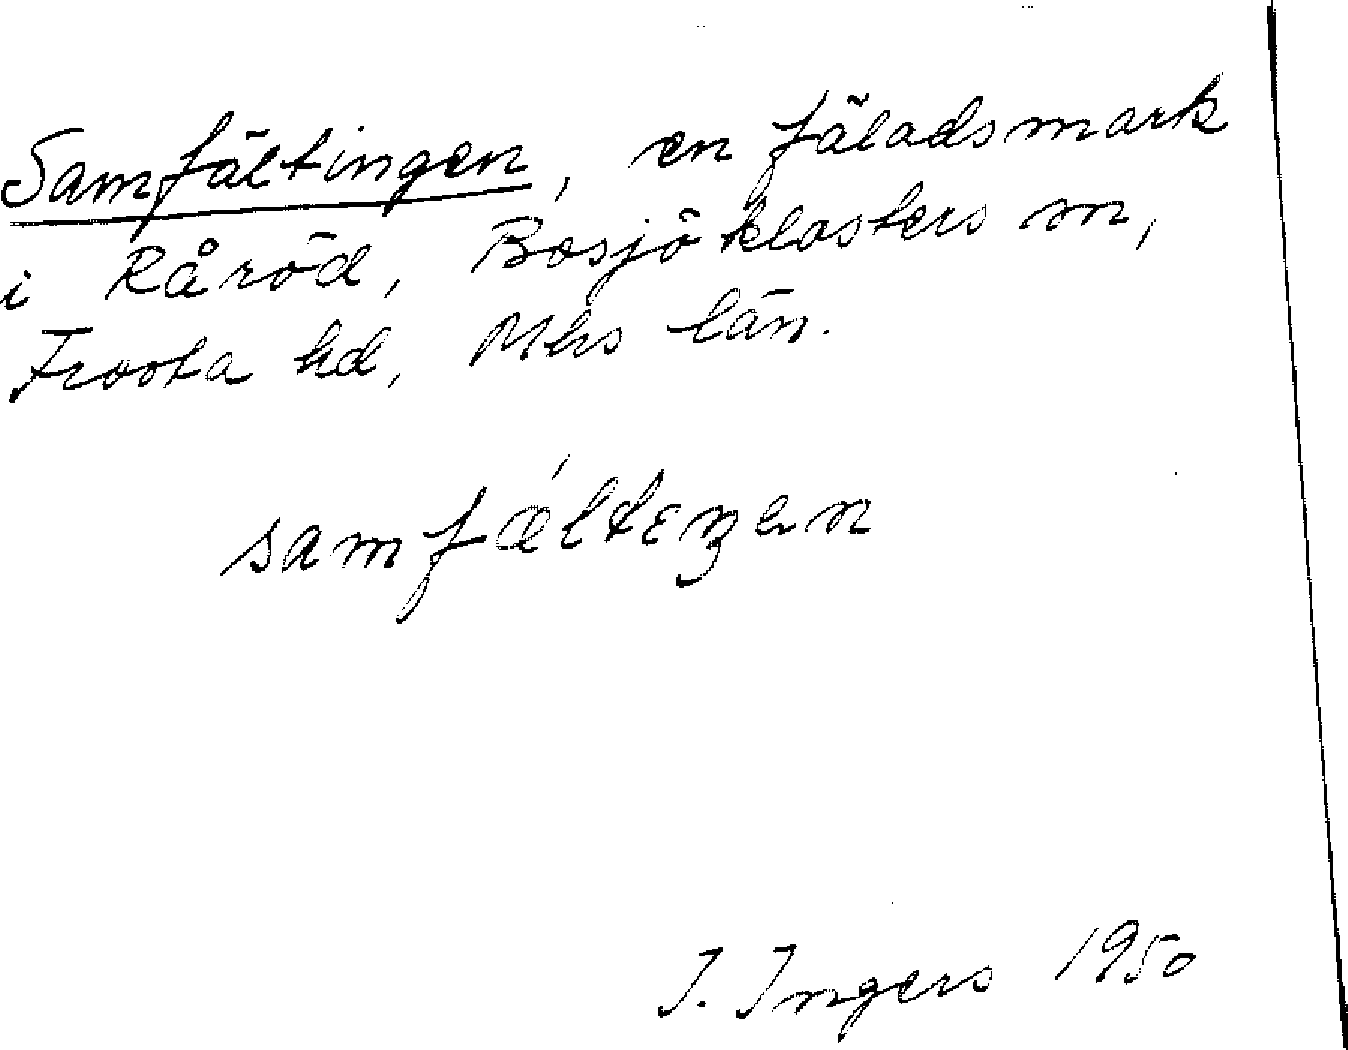 Samfältingen, en fäladsmark
i Råröd, Bosjöklosters sn,
Frosta hd, Mhs län.
samfǽltɛŋən
I. Ingers 1950